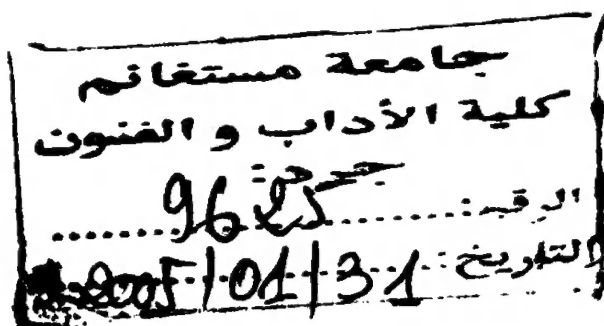 جامعة مستغانم
كلية الأداب و الفنون
جرد:
الرقم:
التاريخ: 2005/01/31